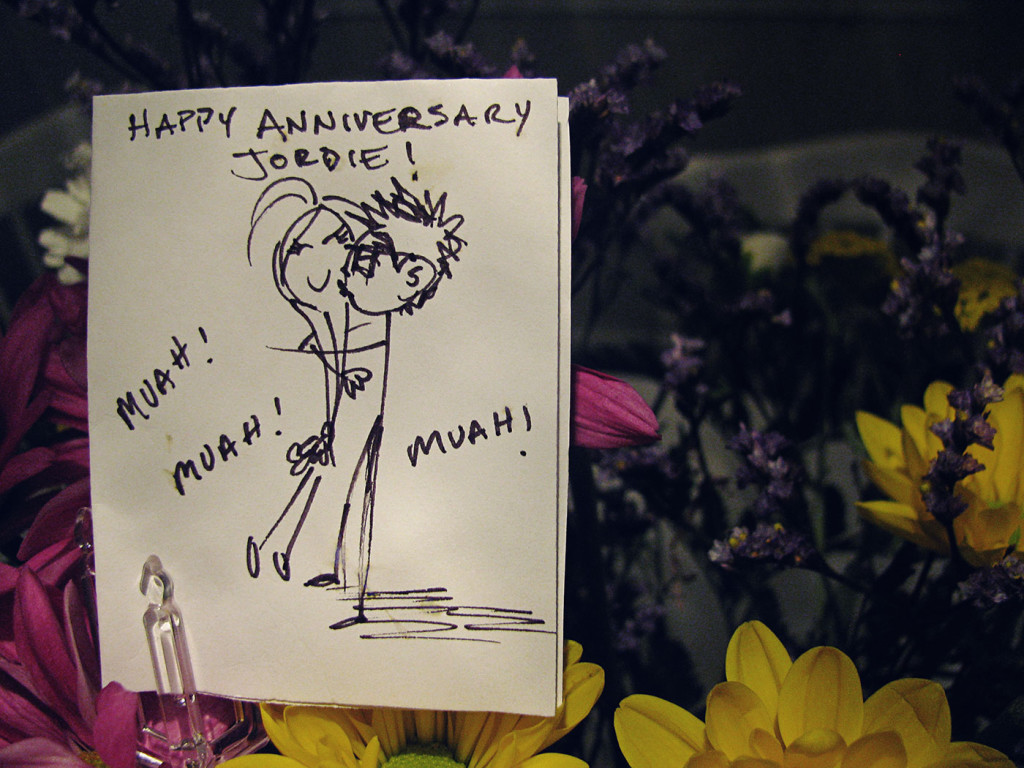 HAPPY ANNIVERSARY
JORDIE!
MUAH!
MUAH!
MUAH!